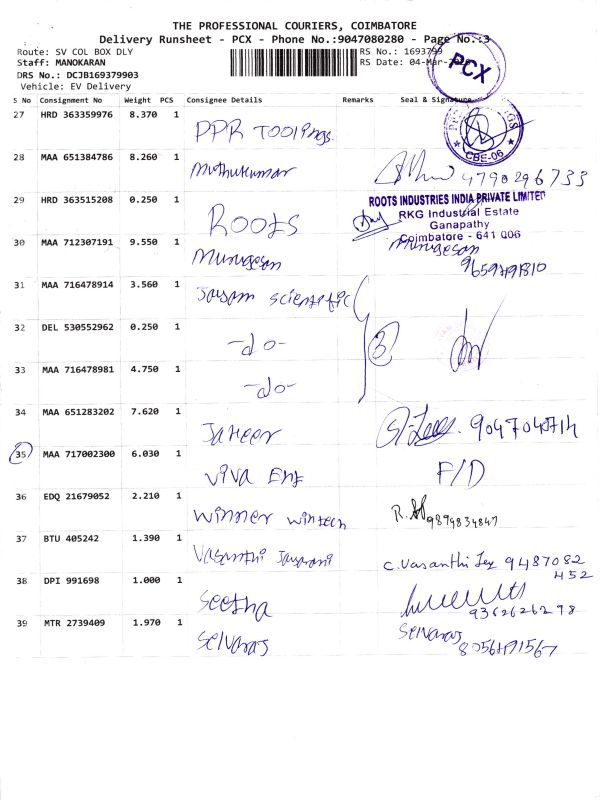 THE PROFESSIONAL COURIERS, COIMBATORE
Delivery Runsheet - PCX - Phone No.:9047080280 - Page No.:3
Route: SV COL BOX DLY
RS No.: 1693799
Staff: MANOKARAN
RS Date: 04-Mar-
DRS No.: DCJB169379903
Vehicle: EV Delivery
PCX
S No Consignment No Weight PCS Consignee Details Remarks Seal & Signature
27 HRD 363359976 8.370 1 PPR Toolings
CBE-06
28 MAA 651384786 8.260 1 Muthukumar 4790296733
29 HRD 363515208 0.250 1 ROOTS
ROOTS INDUSTRIES INDIA PRIVATE LIMITED
RKG Industrial Estate
Ganapathy
Coimbatore - 641 006
30 MAA 712307191 9.550 1 Murugesan Murugesan
31 MAA 716478914 3.560 1 Jayam scientific
32 DEL 530552962 0.250 1 -do- 3
33 MAA 716478981 4.750 1 -do-
34 MAA 651283202 7.620 1 Jaheer
35 MAA 717002300 6.030 1 Viva Ent F/D
36 EDQ 21679052 2.210 1 Winner wintech 9894834847
37 BTU 405242 1.390 1 Vasanthi C. Vasanthi 9487082
452
38 DPI 991698 1.000 1 Seetha
9362626298
39 MTR 2739409 1.970 1 Selvaraj Selvaraj